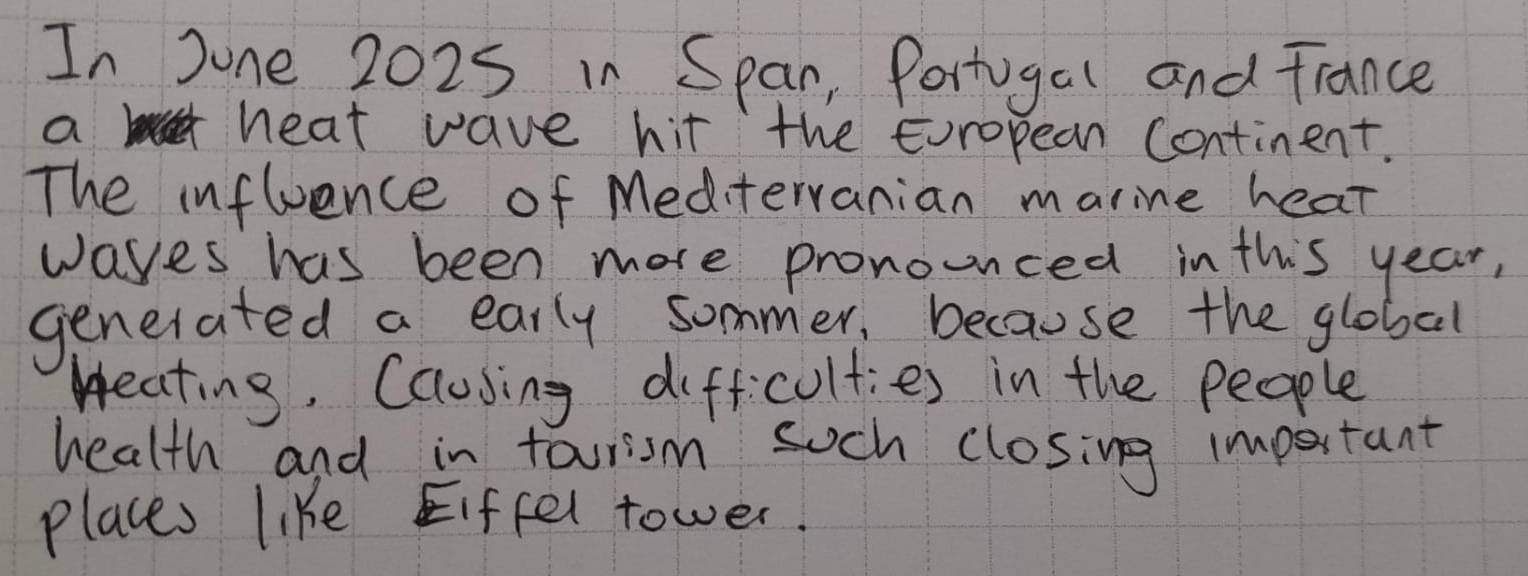 In June 2025 in Span, Portugal and France
a heat wave hit the European Continent.
The influence of Mediterranian marine heat
waves has been more pronounced in this year,
generated a early sommer, because the global
Heating. Causing difficulties in the people
health and in tourism such closing important
places like Eiffel tower.